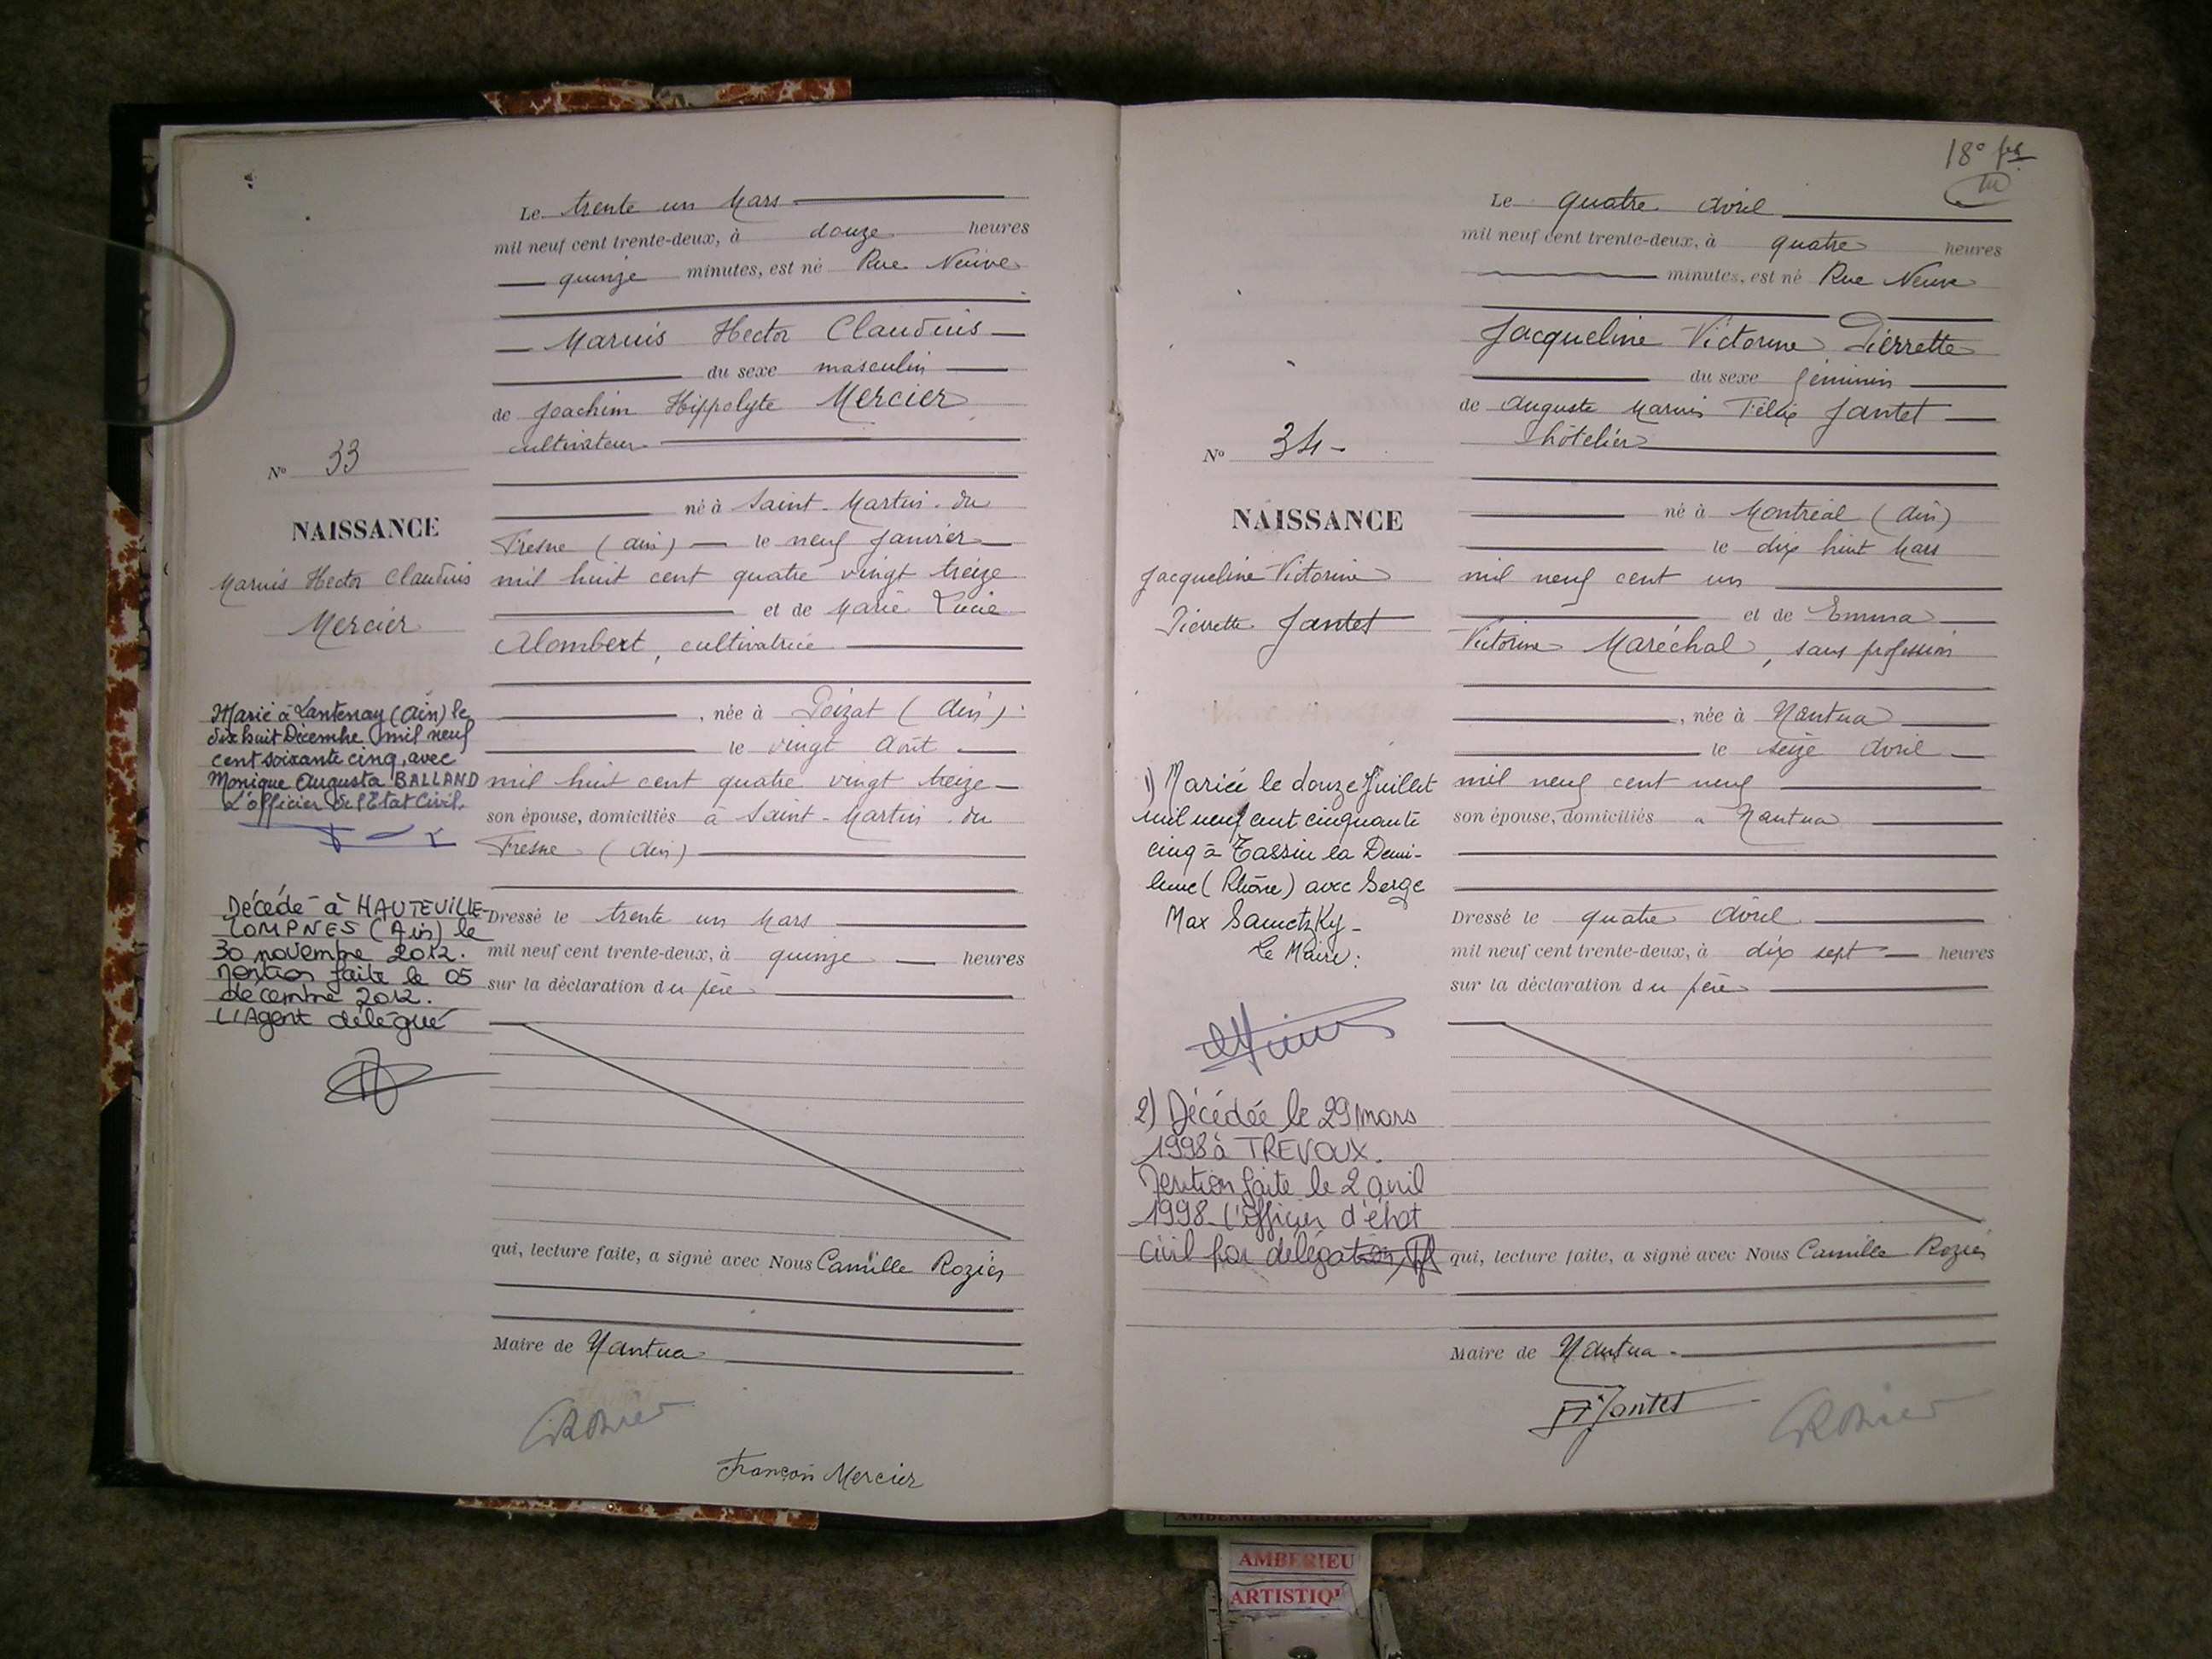 Le trente un Mars
mil neuf cent trente-deux, à douze heures
quinze minutes, est né Rue Neuve
Marius Hector Claudius
du sexe masculin
de Joachim Hippolyte Mercier
cultivateur
né à Saint-Martin-du
Fresne (Ain) le neuf Janvier
mil huit cent quatre vingt treize
et de Marie Lucie
Alombert, cultivatrice
, née à Poizat (Ain)
le vingt Août
mil huit cent quatre vingt treize
son épouse, domiciliés à Saint-Martin-du
Fresne (Ain)
Dressé le trente un Mars
mil neuf cent trente-deux, à quinze heures
sur la déclaration du père
qui, lecture faite, a signé avec Nous Camille Rozier
Maire de Nantua
CRozier
François Mercier
No 33
NAISSANCE
Marius Hector Claudius
Mercier
Marié à Lantenay (Ain) le
dix huit Décembre mil neuf
cent soixante cinq, avec
Monique Augusta BALLAND
L'officier de l'Etat Civil.
Décédé à HAUTEVILLE-
LOMPNES (Ain) le
30 novembre 2012.
Mention faite le 05
décembre 2012.
L'Agent délégué
18e
Le quatre Avril
mil neuf cent trente-deux, à quatre heures
minutes, est né Rue Neuve
Jacqueline Victorine Pierrette
du sexe féminin
de Auguste Marius Félix Jantet
hôtelier
né à Montréal (Ain)
le dix huit Mars
mil neuf cent un
et de Emma
Victorine Maréchal, sans profession
, née à Nantua
le seize Avril
mil neuf cent neuf
son épouse, domiciliés à Nantua
Dressé le quatre Avril
mil neuf cent trente-deux, à dix sept heures
sur la déclaration du père
qui, lecture faite, a signé avec Nous Camille Rozier
Maire de Nantua
Jantet
CRozier
No 34
NAISSANCE
Jacqueline Victorine
Pierrette Jantet
1) Mariée le douze Juillet
mil neuf cent cinquante
cinq à Tassin la Demi-
lune (Rhône) avec Serge
Max Sametzky
Le Maire:
2) Décédée le 29 mars
1998 à TREVOUX.
Mention faite le 2 avril
1998. L'officier d'état
civil par délégation
AMBERIEU ARTISTIQUE
AMBERIEU
ARTISTIQU